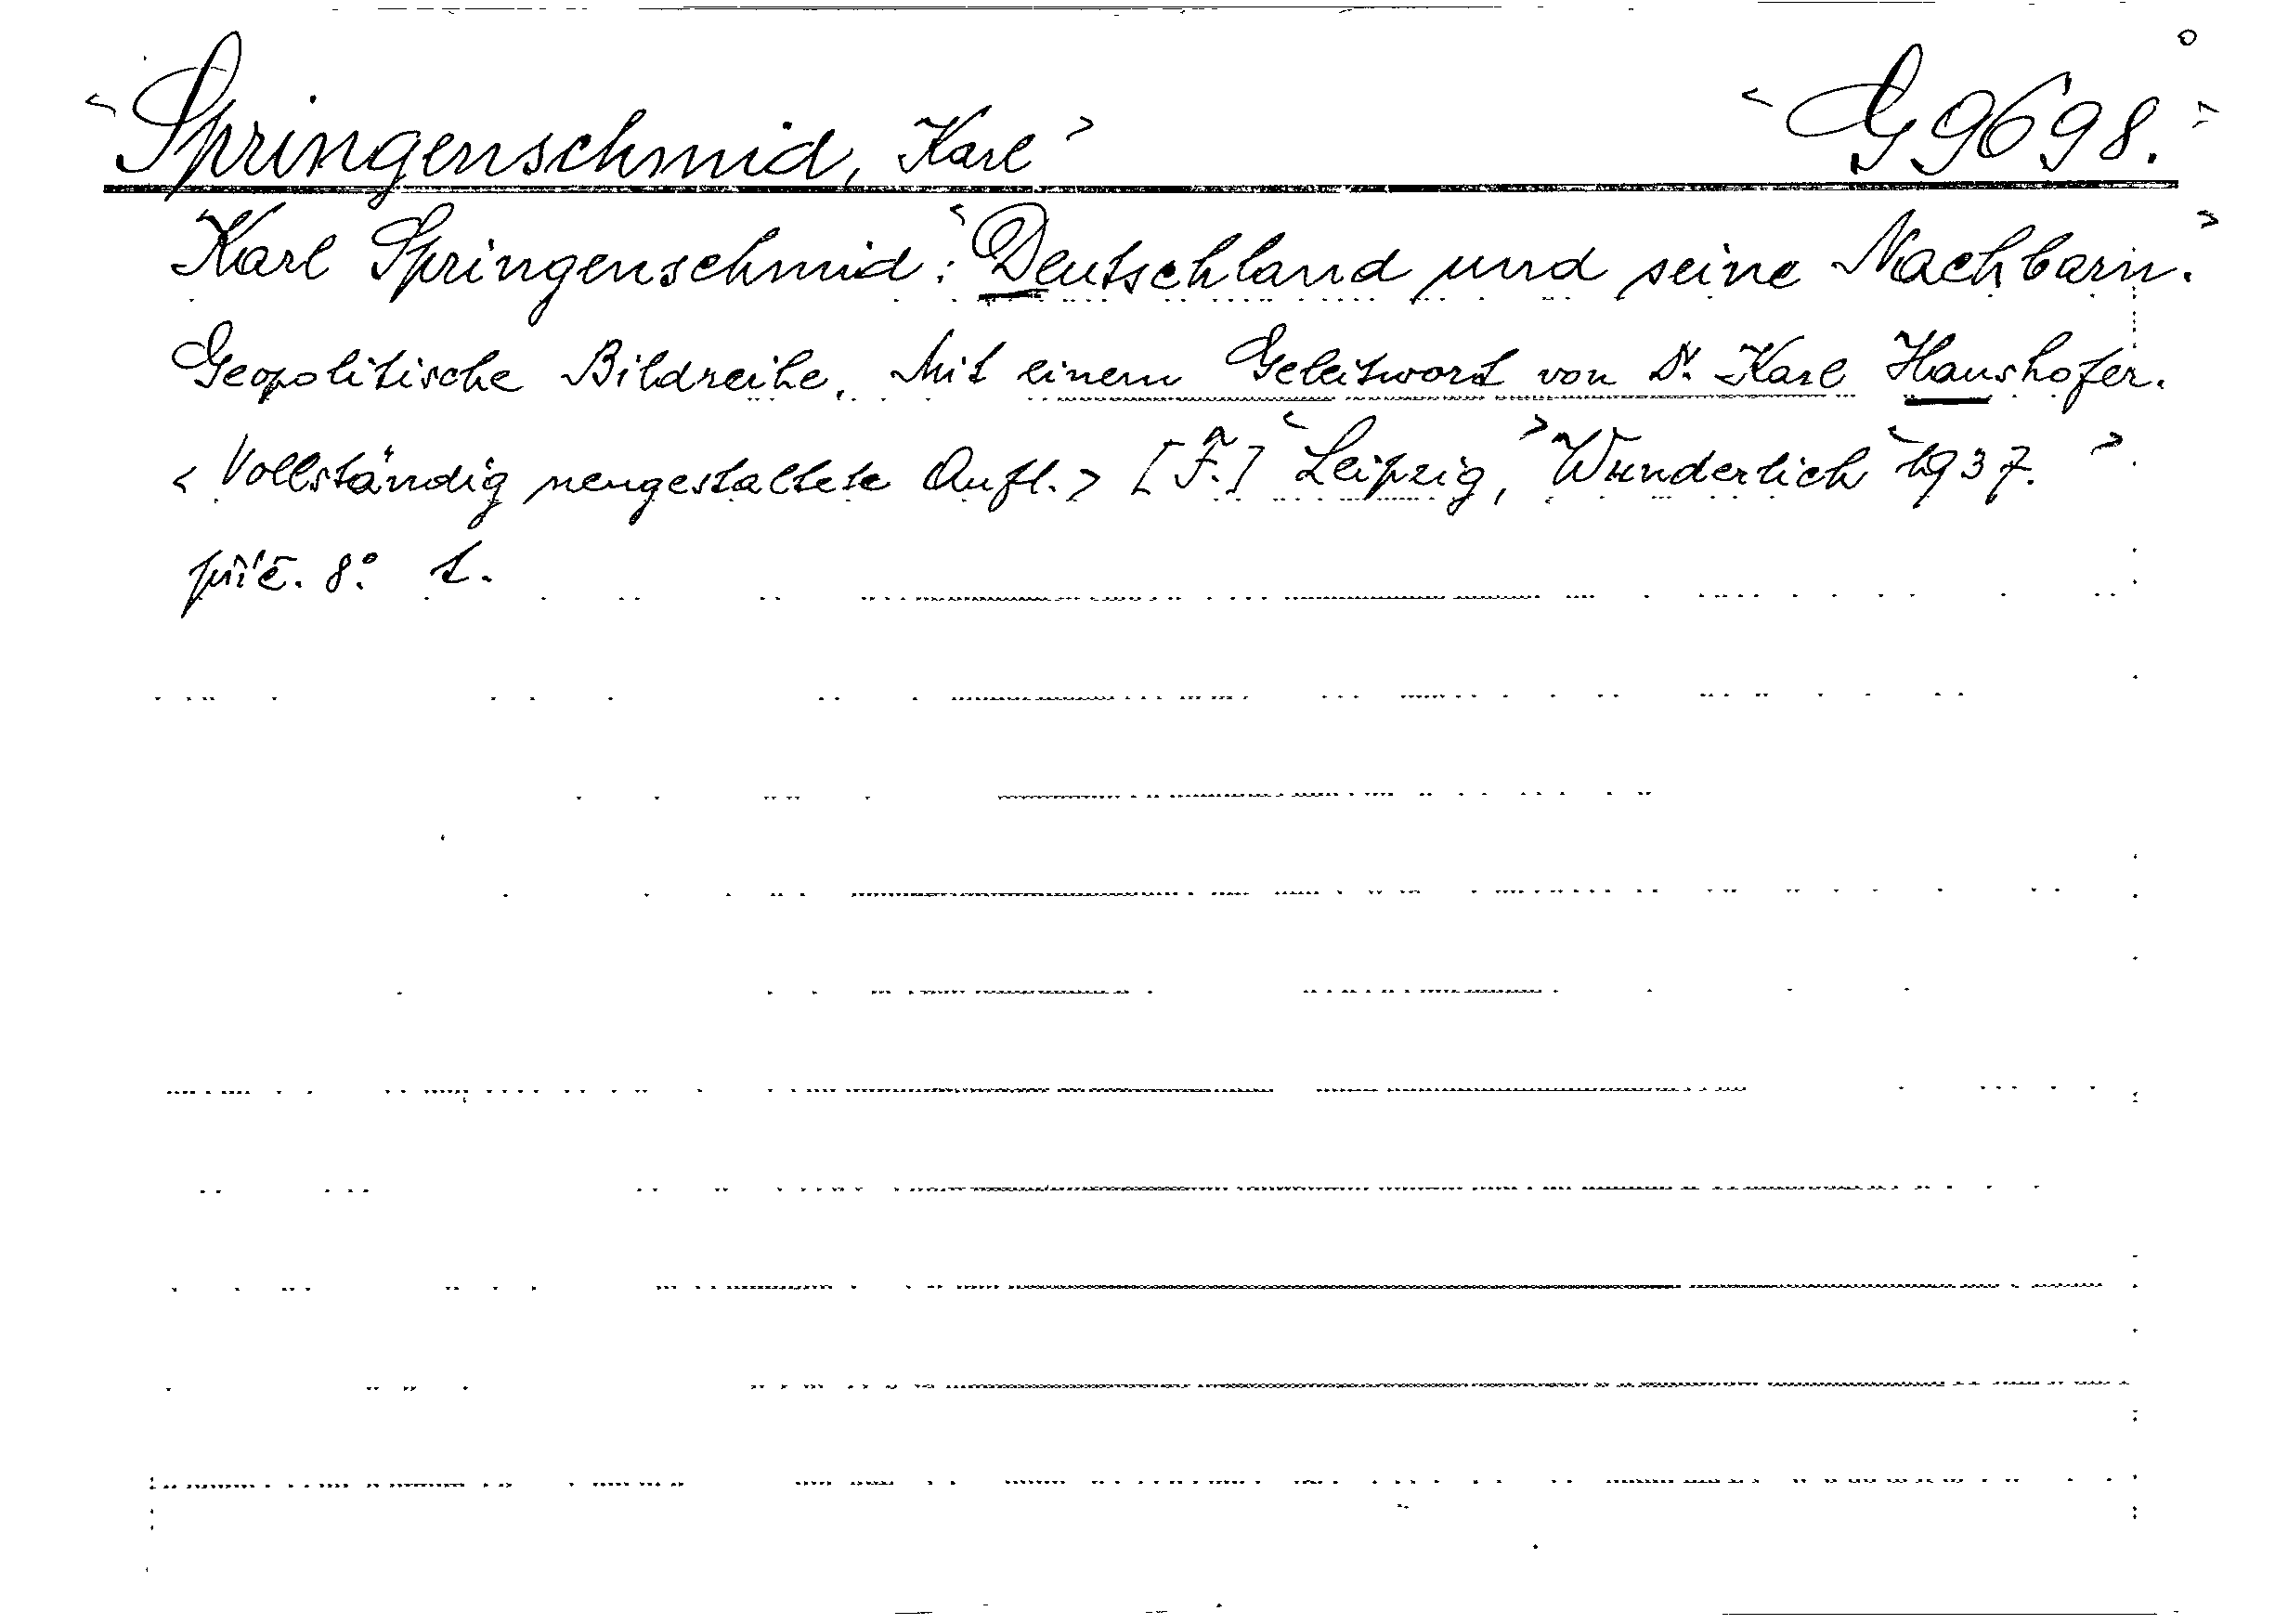 <Springenschmid, Karl> <G 9698.>
Karl Springenschmid: <Deutschland und seine Nachbarn.>
Geopolitische Bildreihe. Mit einem Geleitwort von Dr. Karl Haushofer.
<Vollständig neugestaltete Aufl.> [F.] <Leipzig,> Wunderlich <1937.>
příč. 8° 1.